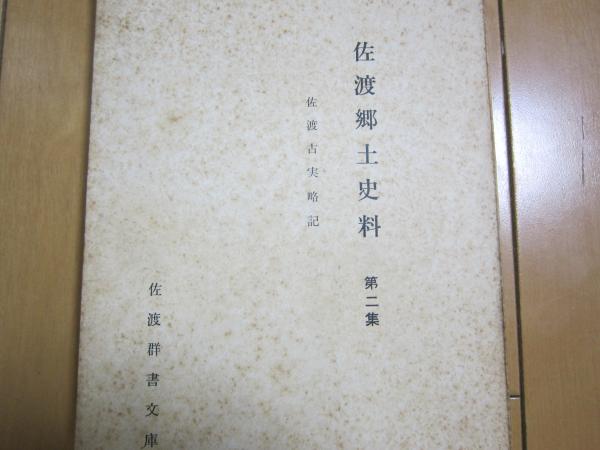 佐渡郷土史料 第二集
佐渡古実略記
佐渡群書文庫